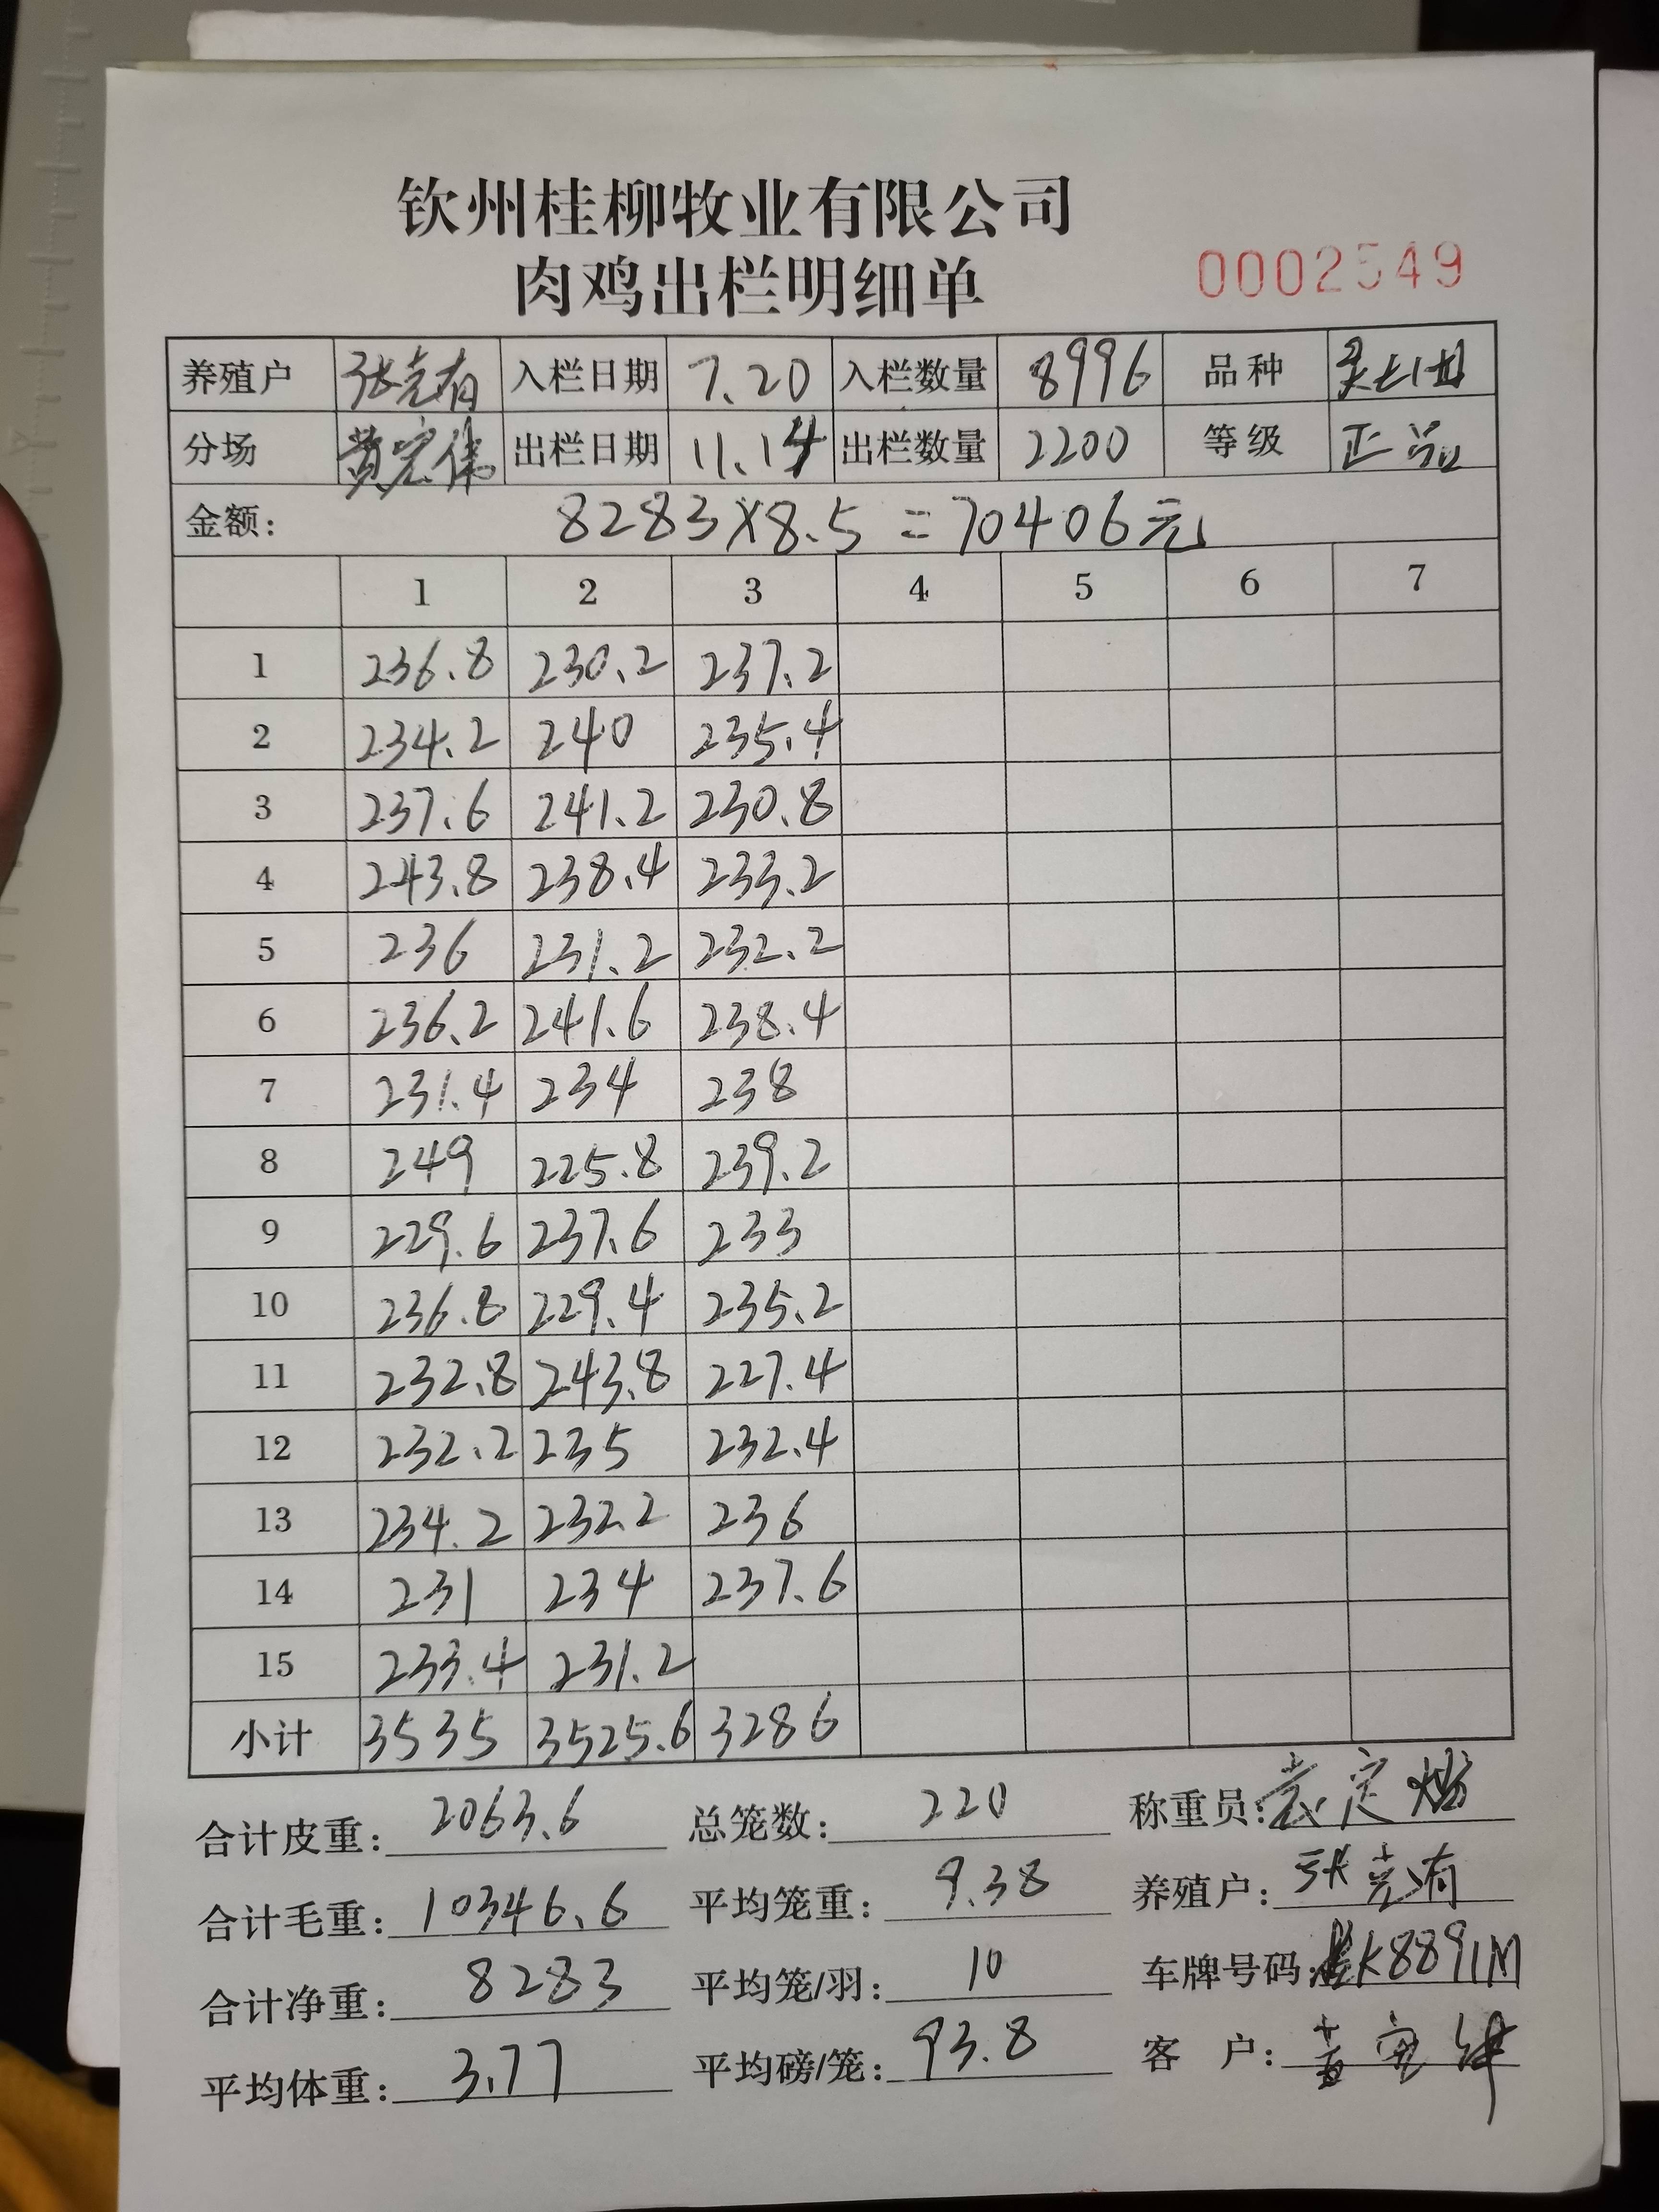 钦州桂柳牧业有限公司
肉鸡出栏明细单
0002549
养殖户 张克有 入栏日期 7.20 入栏数量 8996 品种
分场 黄宏伟 出栏日期 11.14 出栏数量 2200 等级 正品
金额: 8283×8.5=70406元
1 2 3 4 5 6 7
1 236.8 230.2 237.2
2 234.2 240 235.4
3 237.6 241.2 230.8
4 243.8 238.4 233.2
5 236 231.2 232.2
6 236.2 241.6 238.4
7 231.4 234 238
8 249 225.8 239.2
9 229.6 237.6 233
10 236.8 229.4 235.2
11 232.8 243.8 227.4
12 232.2 235 232.4
13 234.2 232.2 236
14 231 234 237.6
15 233.4 231.2
小计 3535 3525.6 3286
合计皮重: 2063.6 总笼数: 220 称重员:
合计毛重: 10346.6 平均笼重: 9.38 养殖户: 张克有
合计净重: 8283 平均笼/羽: 10 车牌号码: K8891M
平均体重: 3.77 平均磅/笼: 93.8 客 户: